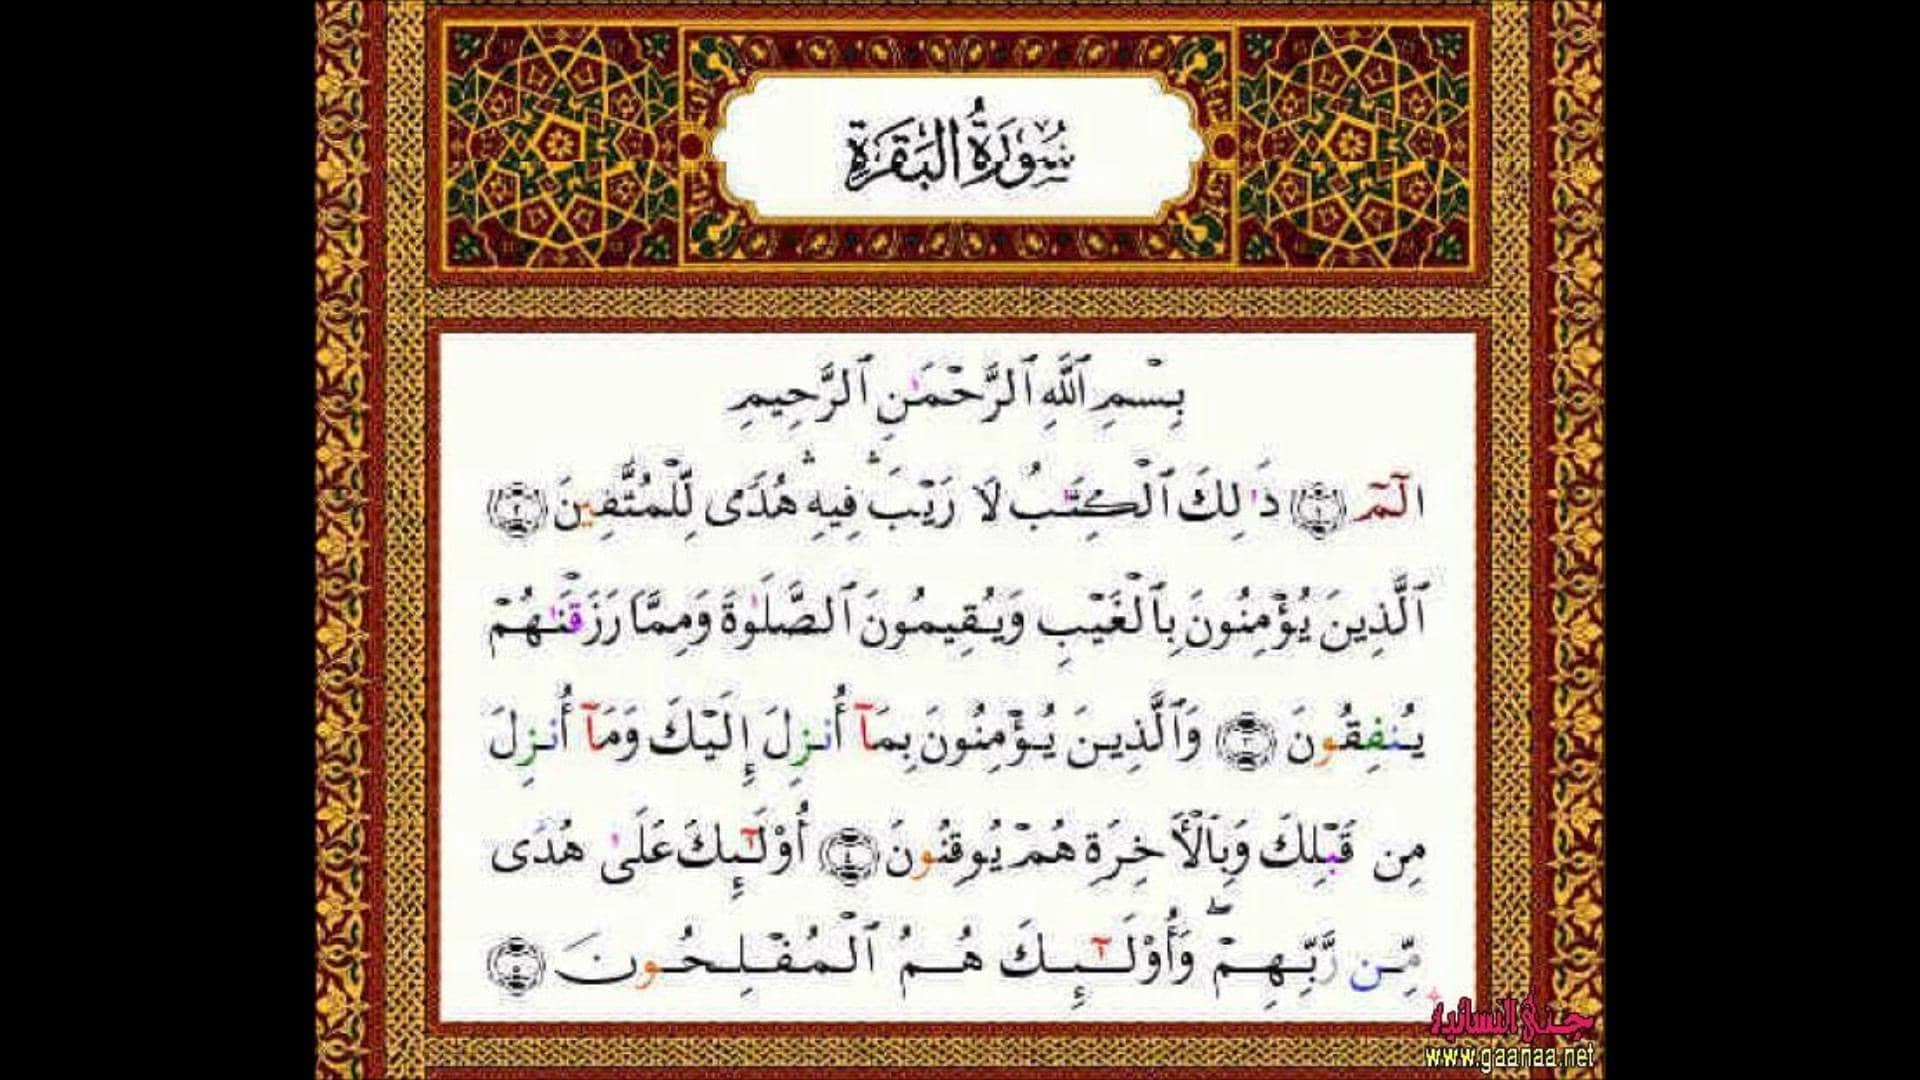 سُورَةُ البَقَرَةِ
بِسْمِ ٱللَّهِ ٱلرَّحْمَٰنِ ٱلرَّحِيمِ
الٓمٓ ۝١ ذَٰلِكَ ٱلْكِتَٰبُ لَا رَيْبَ ۛ فِيهِ ۛ هُدًى لِّلْمُتَّقِينَ ۝٢
ٱلَّذِينَ يُؤْمِنُونَ بِٱلْغَيْبِ وَيُقِيمُونَ ٱلصَّلَوٰةَ وَمِمَّا رَزَقْنَٰهُمْ
يُنفِقُونَ ۝٣ وَٱلَّذِينَ يُؤْمِنُونَ بِمَآ أُنزِلَ إِلَيْكَ وَمَآ أُنزِلَ
مِن قَبْلِكَ وَبِٱلْأَخِرَةِ هُمْ يُوقِنُونَ ۝٤ أُوْلَٰٓئِكَ عَلَىٰ هُدًى
مِّن رَّبِّهِمْ ۖ وَأُوْلَٰٓئِكَ هُمُ ٱلْمُفْلِحُونَ ۝٥
www.gaanaa.net